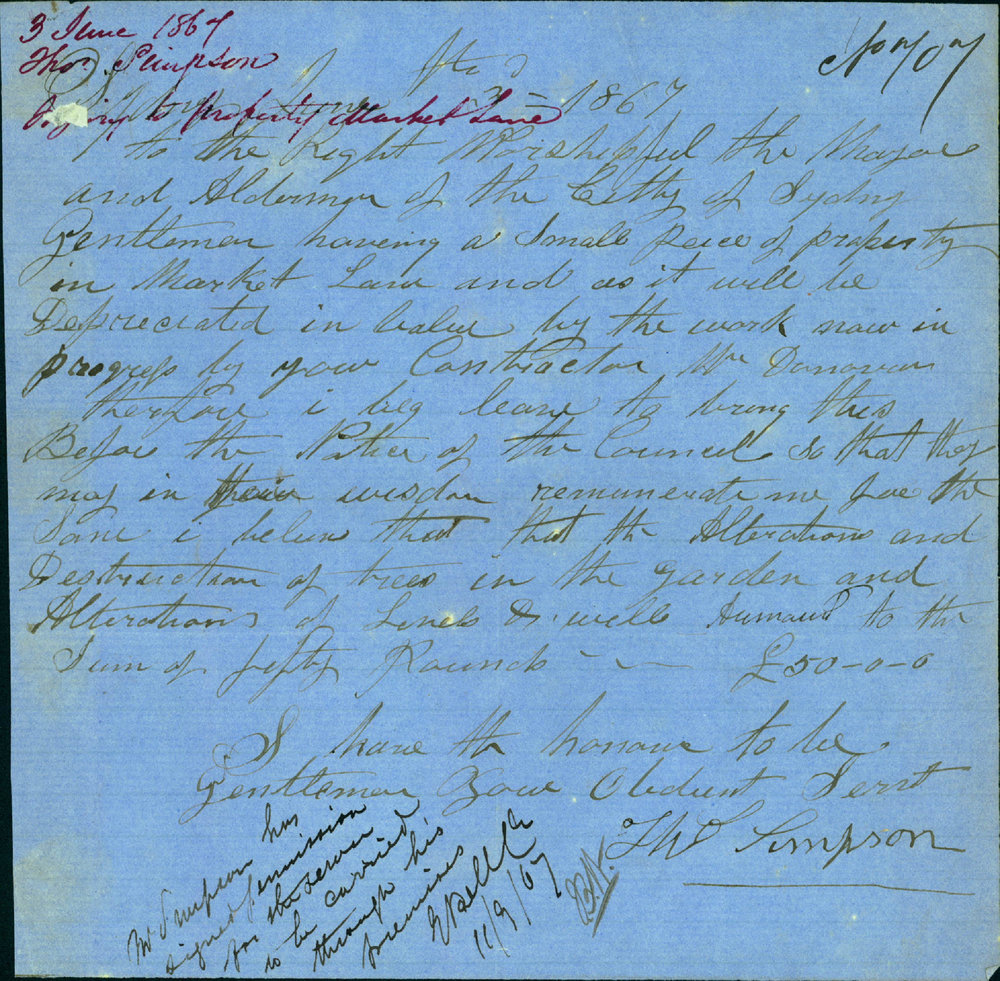 3 June 1867
Thos. Simpson
Injury to property Market Lane
No 707
Sydney June the 3 = 1867
to the Right Worshepful the Mayor
and Aldermen of the Citty of Sydny
Gentlemen having a Small Peice of property
in Market Lane and as it will be
Depreciated in value by the work now in
progress by your Contractor Mr Donovan
therfore i beg leave to bring this
Before the Notice of the Council so that they
may in their wisdom remunerate me for the
Same i beleve that that the Alterations and
Destruction of trees in the garden and
Alterations of Levels &. will Amount to the
Sum of fifty Pounds £50-0-0
I have the honour to be
Gentlemen Your Obedient Servt
Thos Simpson
Mr Simpson has
signed permission
for the sewer
to be carried
through his
premises
E Bell C.E.
11/9/67